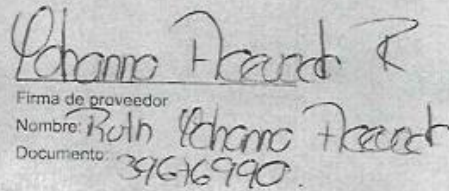 Yohanna Acevedo R
Firma de proveedor
Nombre: Ruth Yohanna Acevedo
Documento: 39616990.